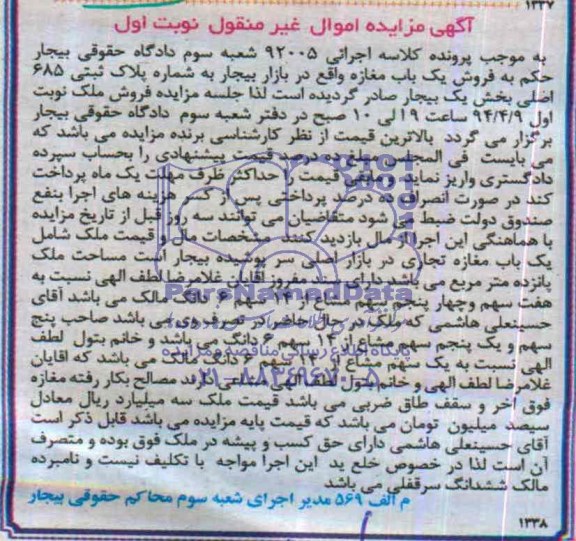 ۱۳۳۷
آگهی مزایده اموال غیر منقول نوبت اول
به موجب پرونده کلاسه اجرائی ۹۲۰۰۵ شعبه سوم دادگاه حقوقی بیجار
حکم به فروش یک باب مغازه واقع در بازار بیجار به شماره پلاک ثبتی ۶۸۵
اصلی بخش یک بیجار صادر گردیده است لذا جلسه مزایده فروش ملک نوبت
اول ۹۴/۴/۹ ساعت ۹ الی ۱۰ صبح در دفتر شعبه سوم دادگاه حقوقی بیجار
برگزار می گردد بالاترین قیمت از نظر کارشناسی برنده مزایده می باشد که
می بایست فی المجلس مبلغ ده درصد قیمت پیشنهادی را بحساب سپرده
دادگستری واریز نماید و مابقی قیمت را حداکثر ظرف مهلت یک ماه پرداخت
کند در صورت انصراف ده درصد پرداختی پس از کسر هزینه های اجرا بنفع
صندوق دولت ضبط می شود متقاضیان می توانند سه روز قبل از تاریخ مزایده
با هماهنگی این اجرا از مال بازدید کنند مشخصات مال و قیمت ملک شامل
یک باب مغازه تجاری در بازار اصلی سر پوشیده بیجار است مساحت ملک
پانزده متر مربع می باشد دارای سند مفروز آقایان غلامرضا لطف الهی نسبت به
هفت سهم وچهار پنجم سهم مشاع از ۱۴ سهم ۶ دانگ مالک می باشد آقای
حسینعلی هاشمی که ملک در حال حاضر در تصرف وی می باشد صاحب پنج
سهم و یک پنجم سهم مشاع از ۱۴ سهم ۶ دانگ می باشد و خانم بتول لطف
الهی نسبت به یک سهم مشاع از ۱۴ سهم ۶ دانگ مالک می باشد که آقایان
غلامرضا لطف الهی و خانم بتول لطف الهی دارند مصالح بکار رفته مغازه
فوق آخر و سقف طاق ضربی می باشد قیمت ملک سه میلیارد ریال معادل
سیصد میلیون تومان می باشد که قیمت پایه مزایده می باشد قابل ذکر است
آقای حسینعلی هاشمی دارای حق کسب و پیشه در ملک فوق بوده و متصرف
آن است لذا در خصوص خلع ید این اجرا مواجه با تکلیف نیست و نامبرده
مالک ششدانگ سرقفلی می باشد
م الف ۵۶۹ مدیر اجرای شعبه سوم محاکم حقوقی بیجار
۱۳۳۸
ParsNamadData
پایگاه اطلاع رسانی مناقصه و مزایده
۰۲۱-۸۸۳۴۹۶۷۰-۵